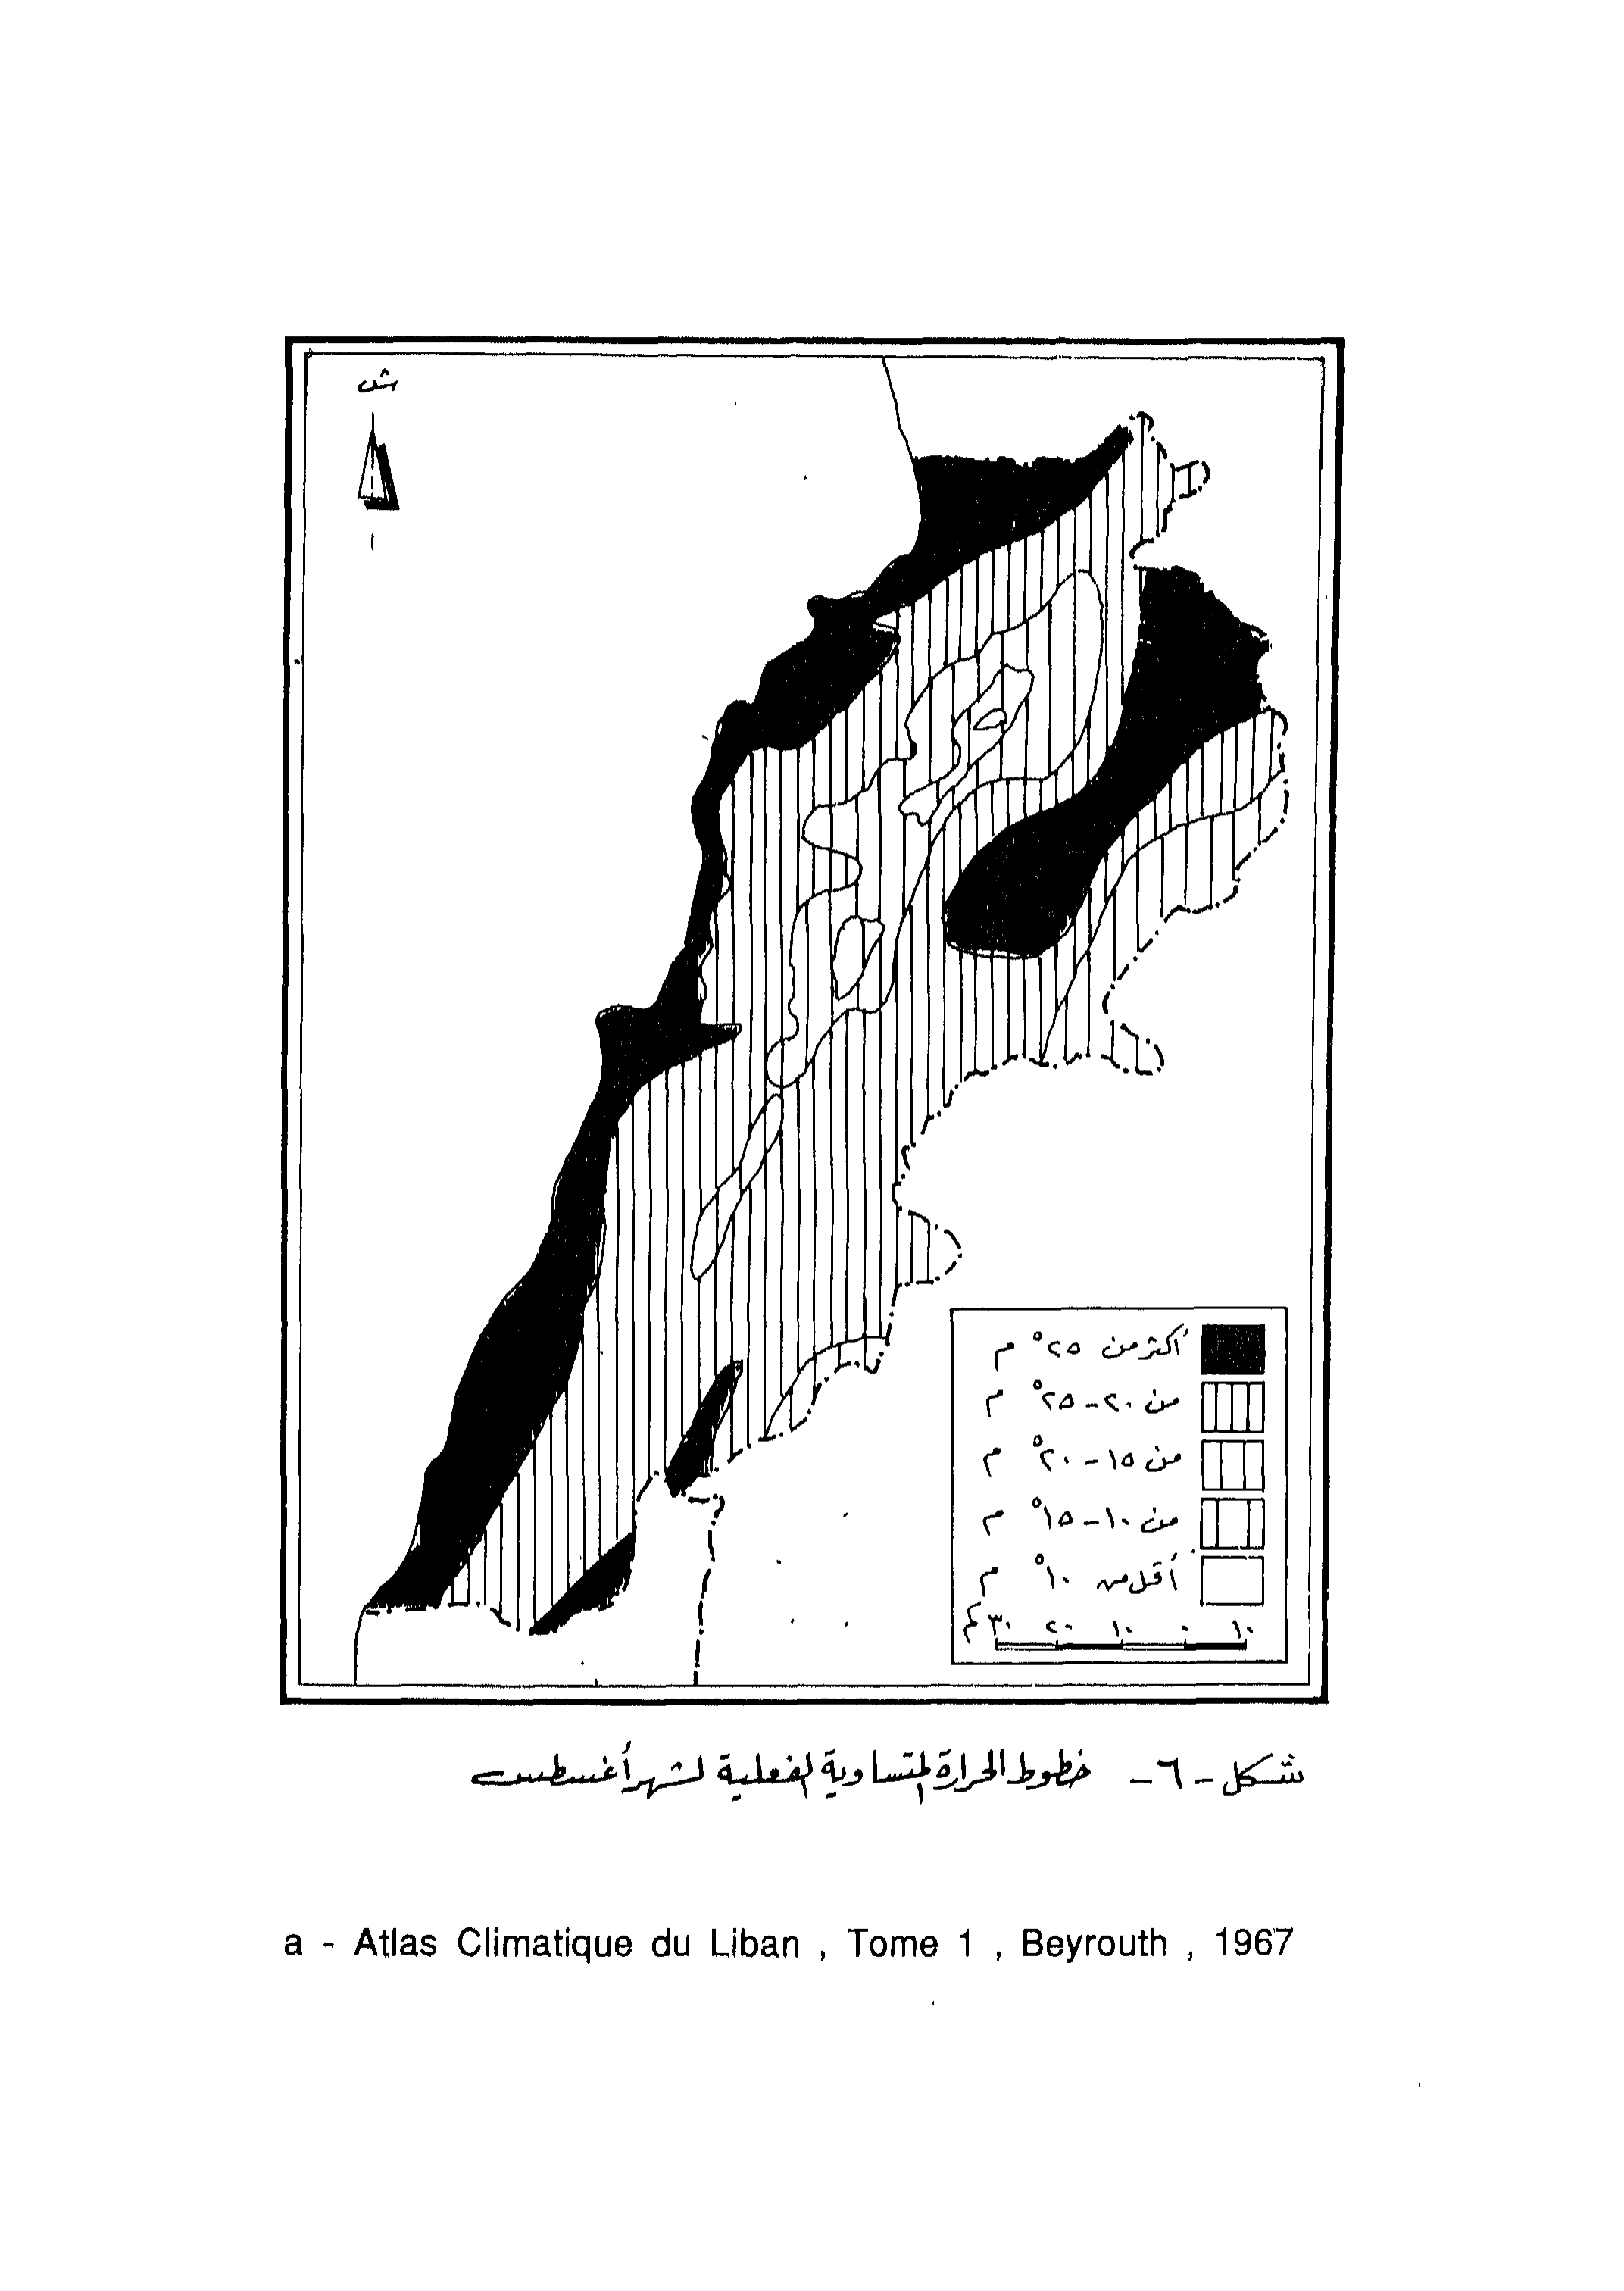 ش
أكثر من ٢٥° م
من ٢٠ - ٢٥° م
من ١٥ - ٢٠° م
من ١٠ - ١٥° م
أقل من ١٠° م
١٠ ٠ ١٠ ٢٠ ٣٠ كم
شكل - ٦ - خطوط الحرارة المتساوية الفعلية لشهر أغسطس
a - Atlas Climatique du Liban , Tome 1 , Beyrouth , 1967